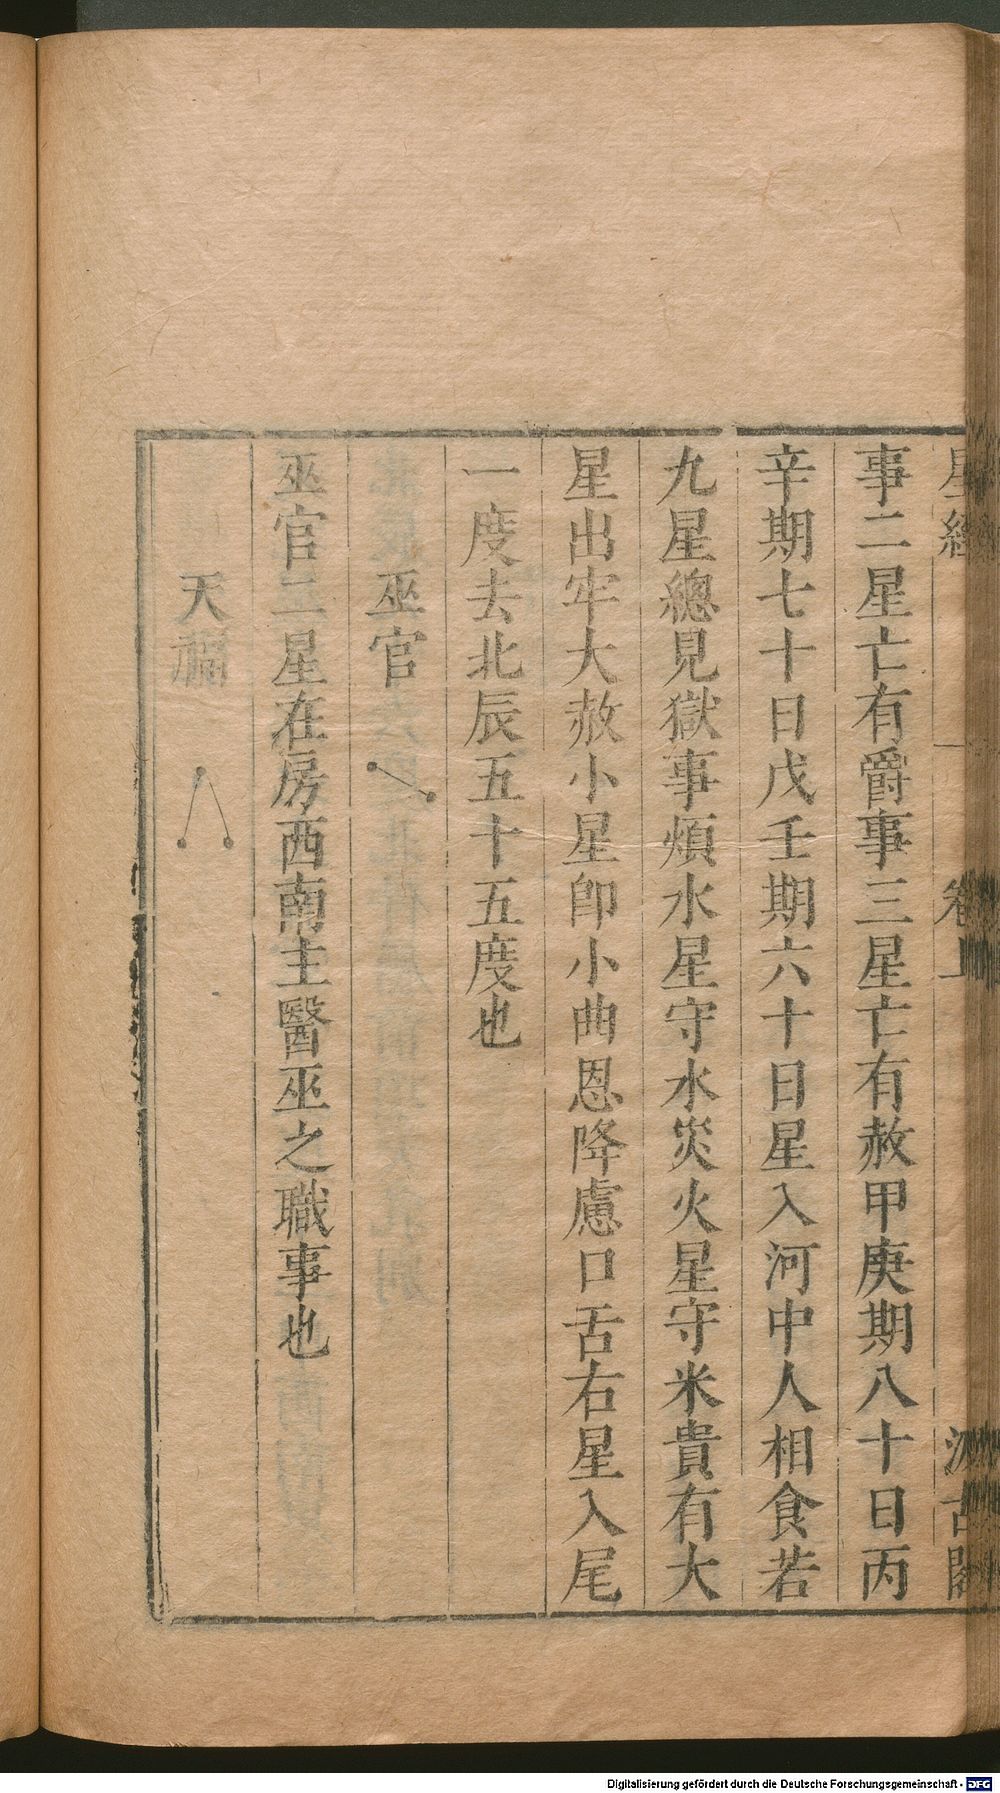 星經　卷上　汲古閣
事二星亡有爵事三星亡有赦甲庚期八十日丙
辛期七十日戊壬期六十日星入河中人相食若
九星總見獄事煩水星守水災火星守米貴有大
星出牢大赦小星卽小曲恩降慮口舌右星入尾
一度去北辰五十五度也
巫官
巫官二星在房西南主醫巫之職事也
天福
Digitalisierung gefördert durch die Deutsche Forschungsgemeinschaft - DFG